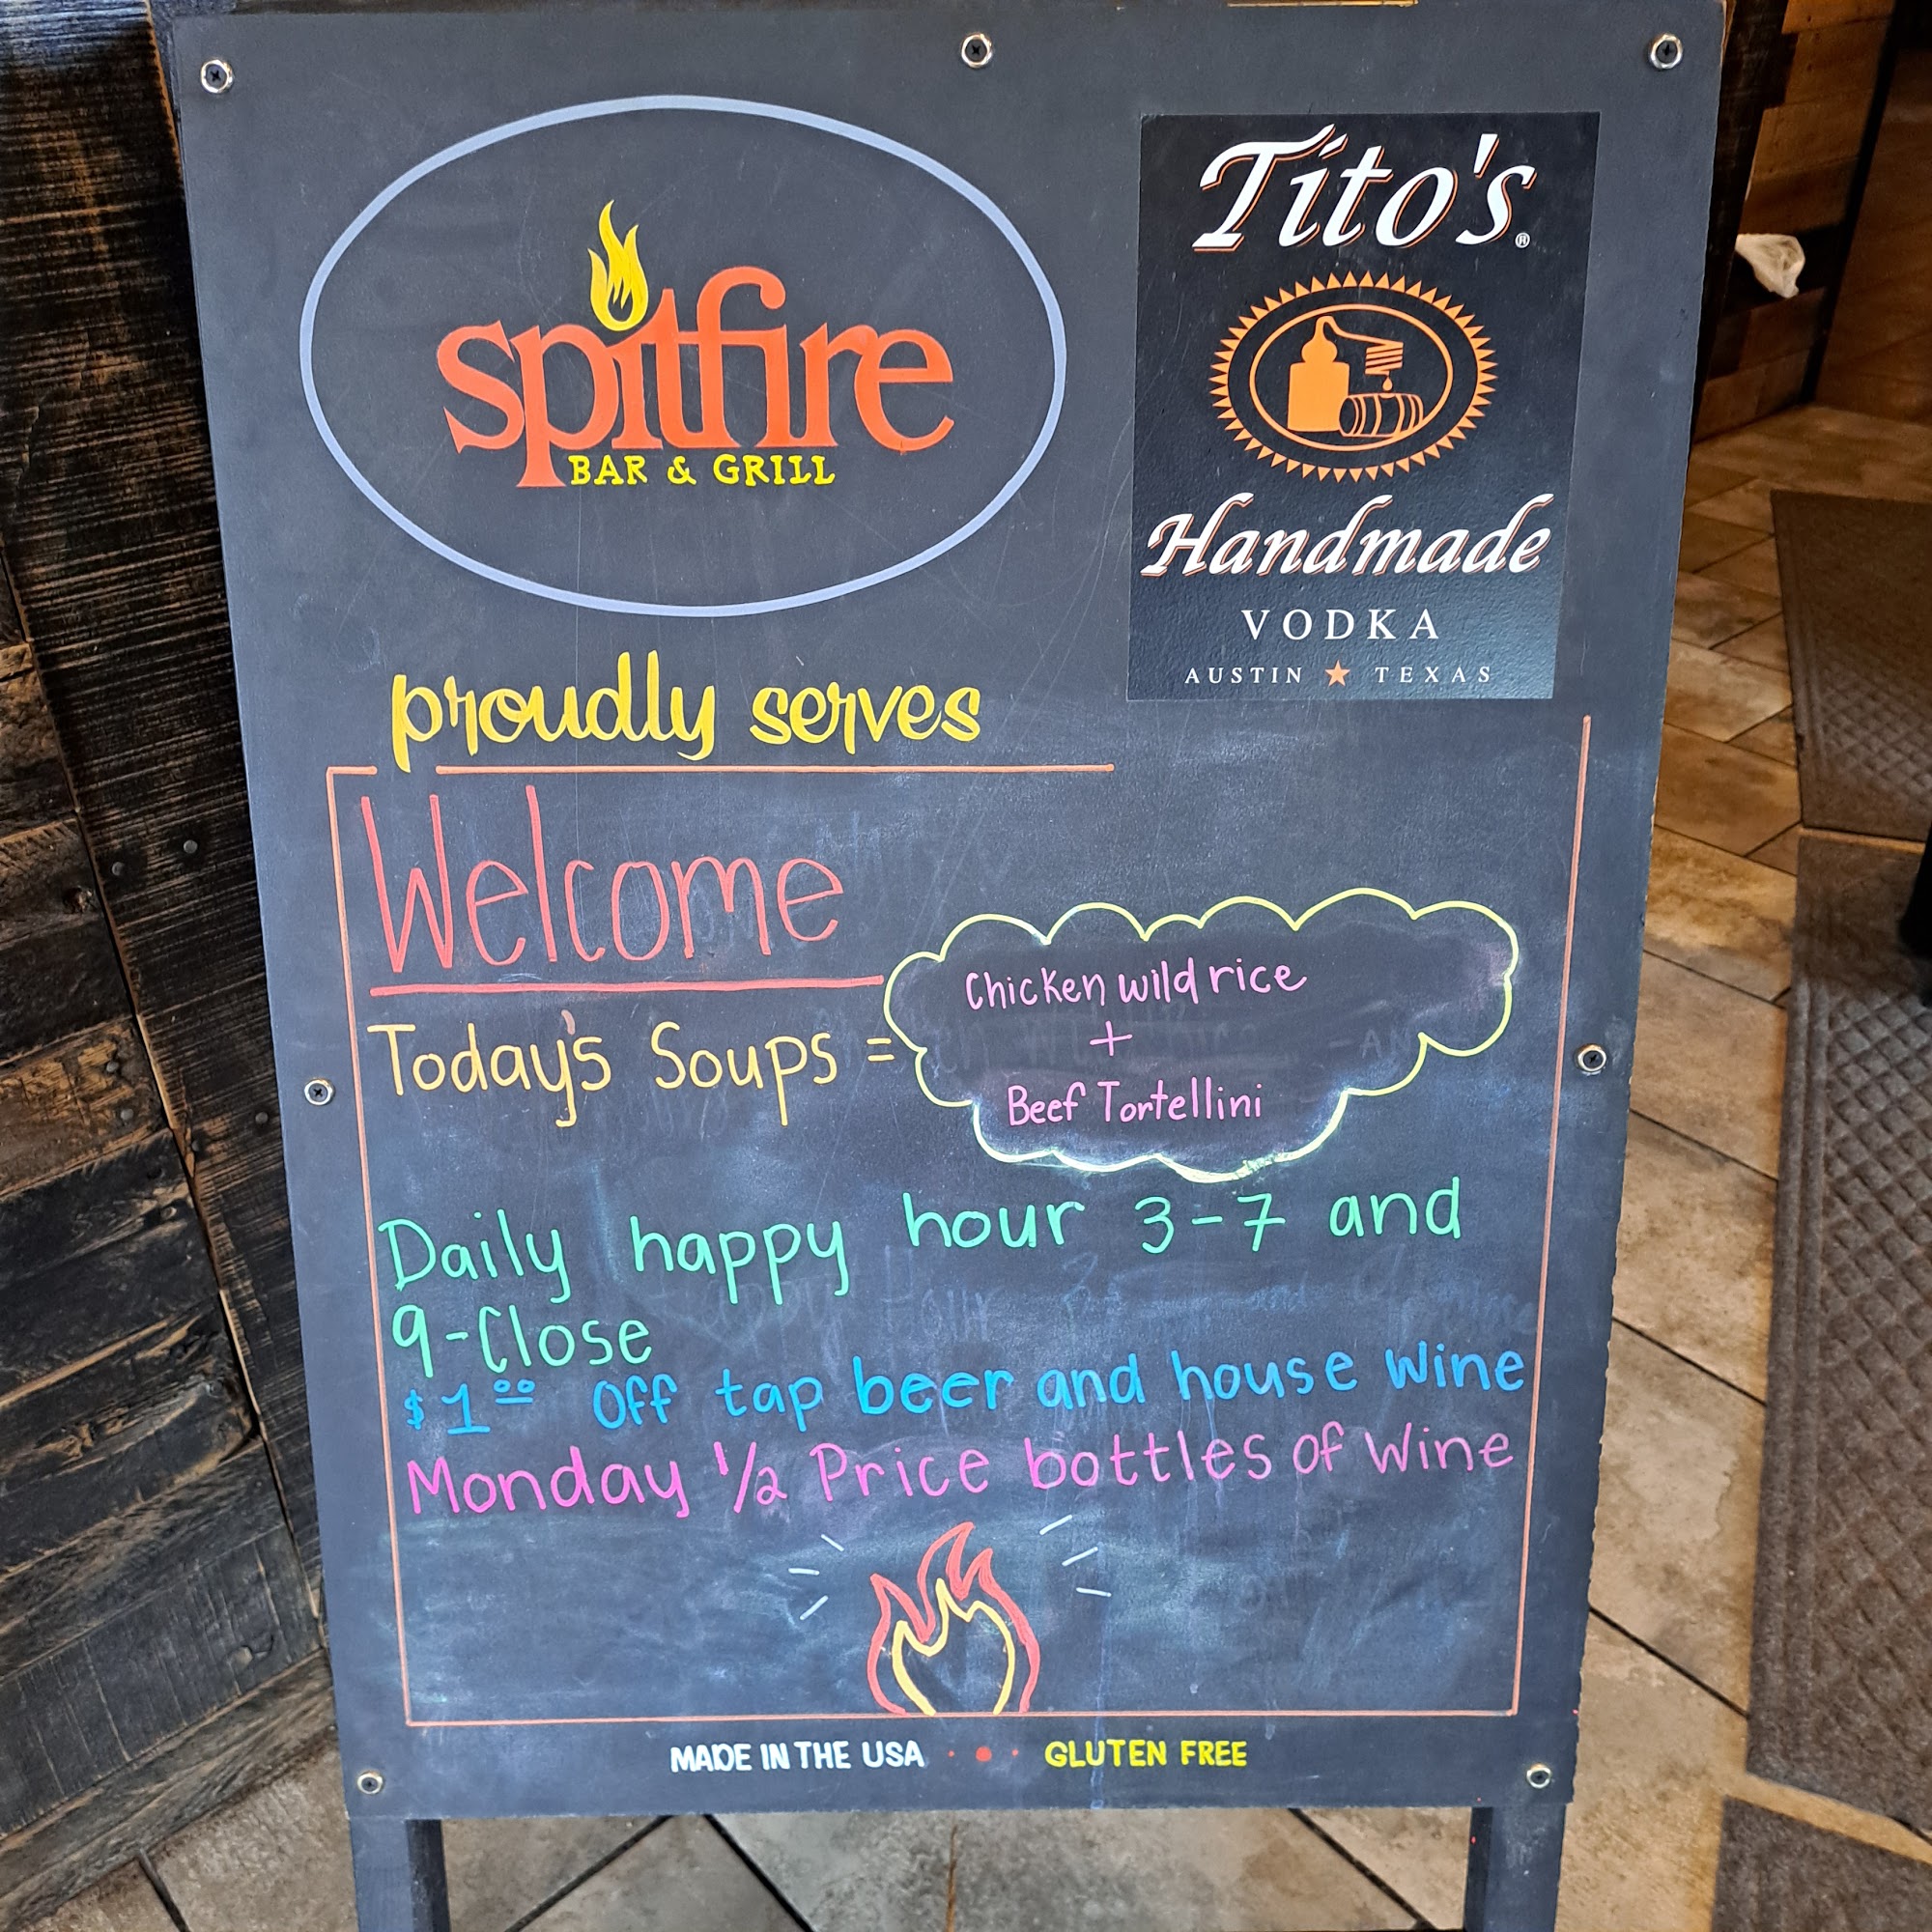 spitfire
BAR & GRILL
Tito's®
Handmade
VODKA
AUSTIN ★ TEXAS
proudly serves
Welcome
Today's Soups =
Chicken wild rice
+
Beef Tortellini
Daily happy hour 3-7 and
9-Close
$1⁰⁰ Off tap beer and house wine
Monday ½ Price bottles of Wine
MADE IN THE USA • • • GLUTEN FREE